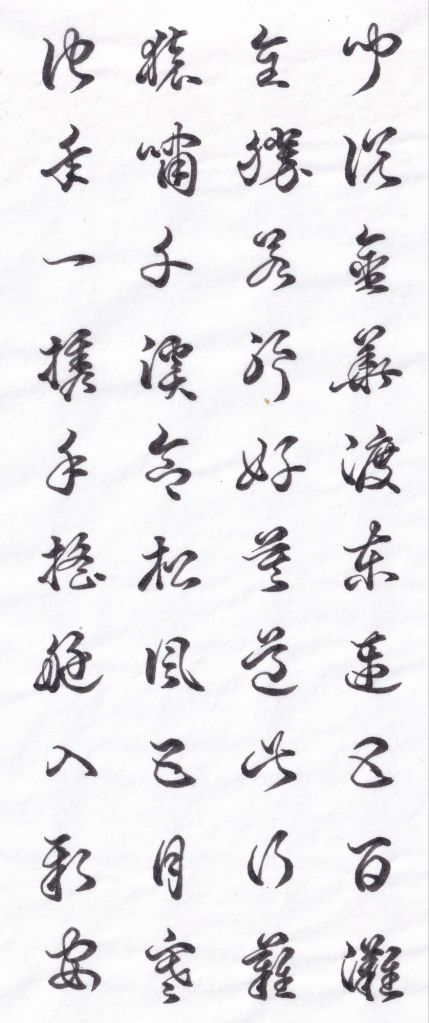 聞說金華渡東連五百灘
全勝若耶好莫道此行難
猿嘯千溪合松風五月寒
他年一攜手搖艇入新安